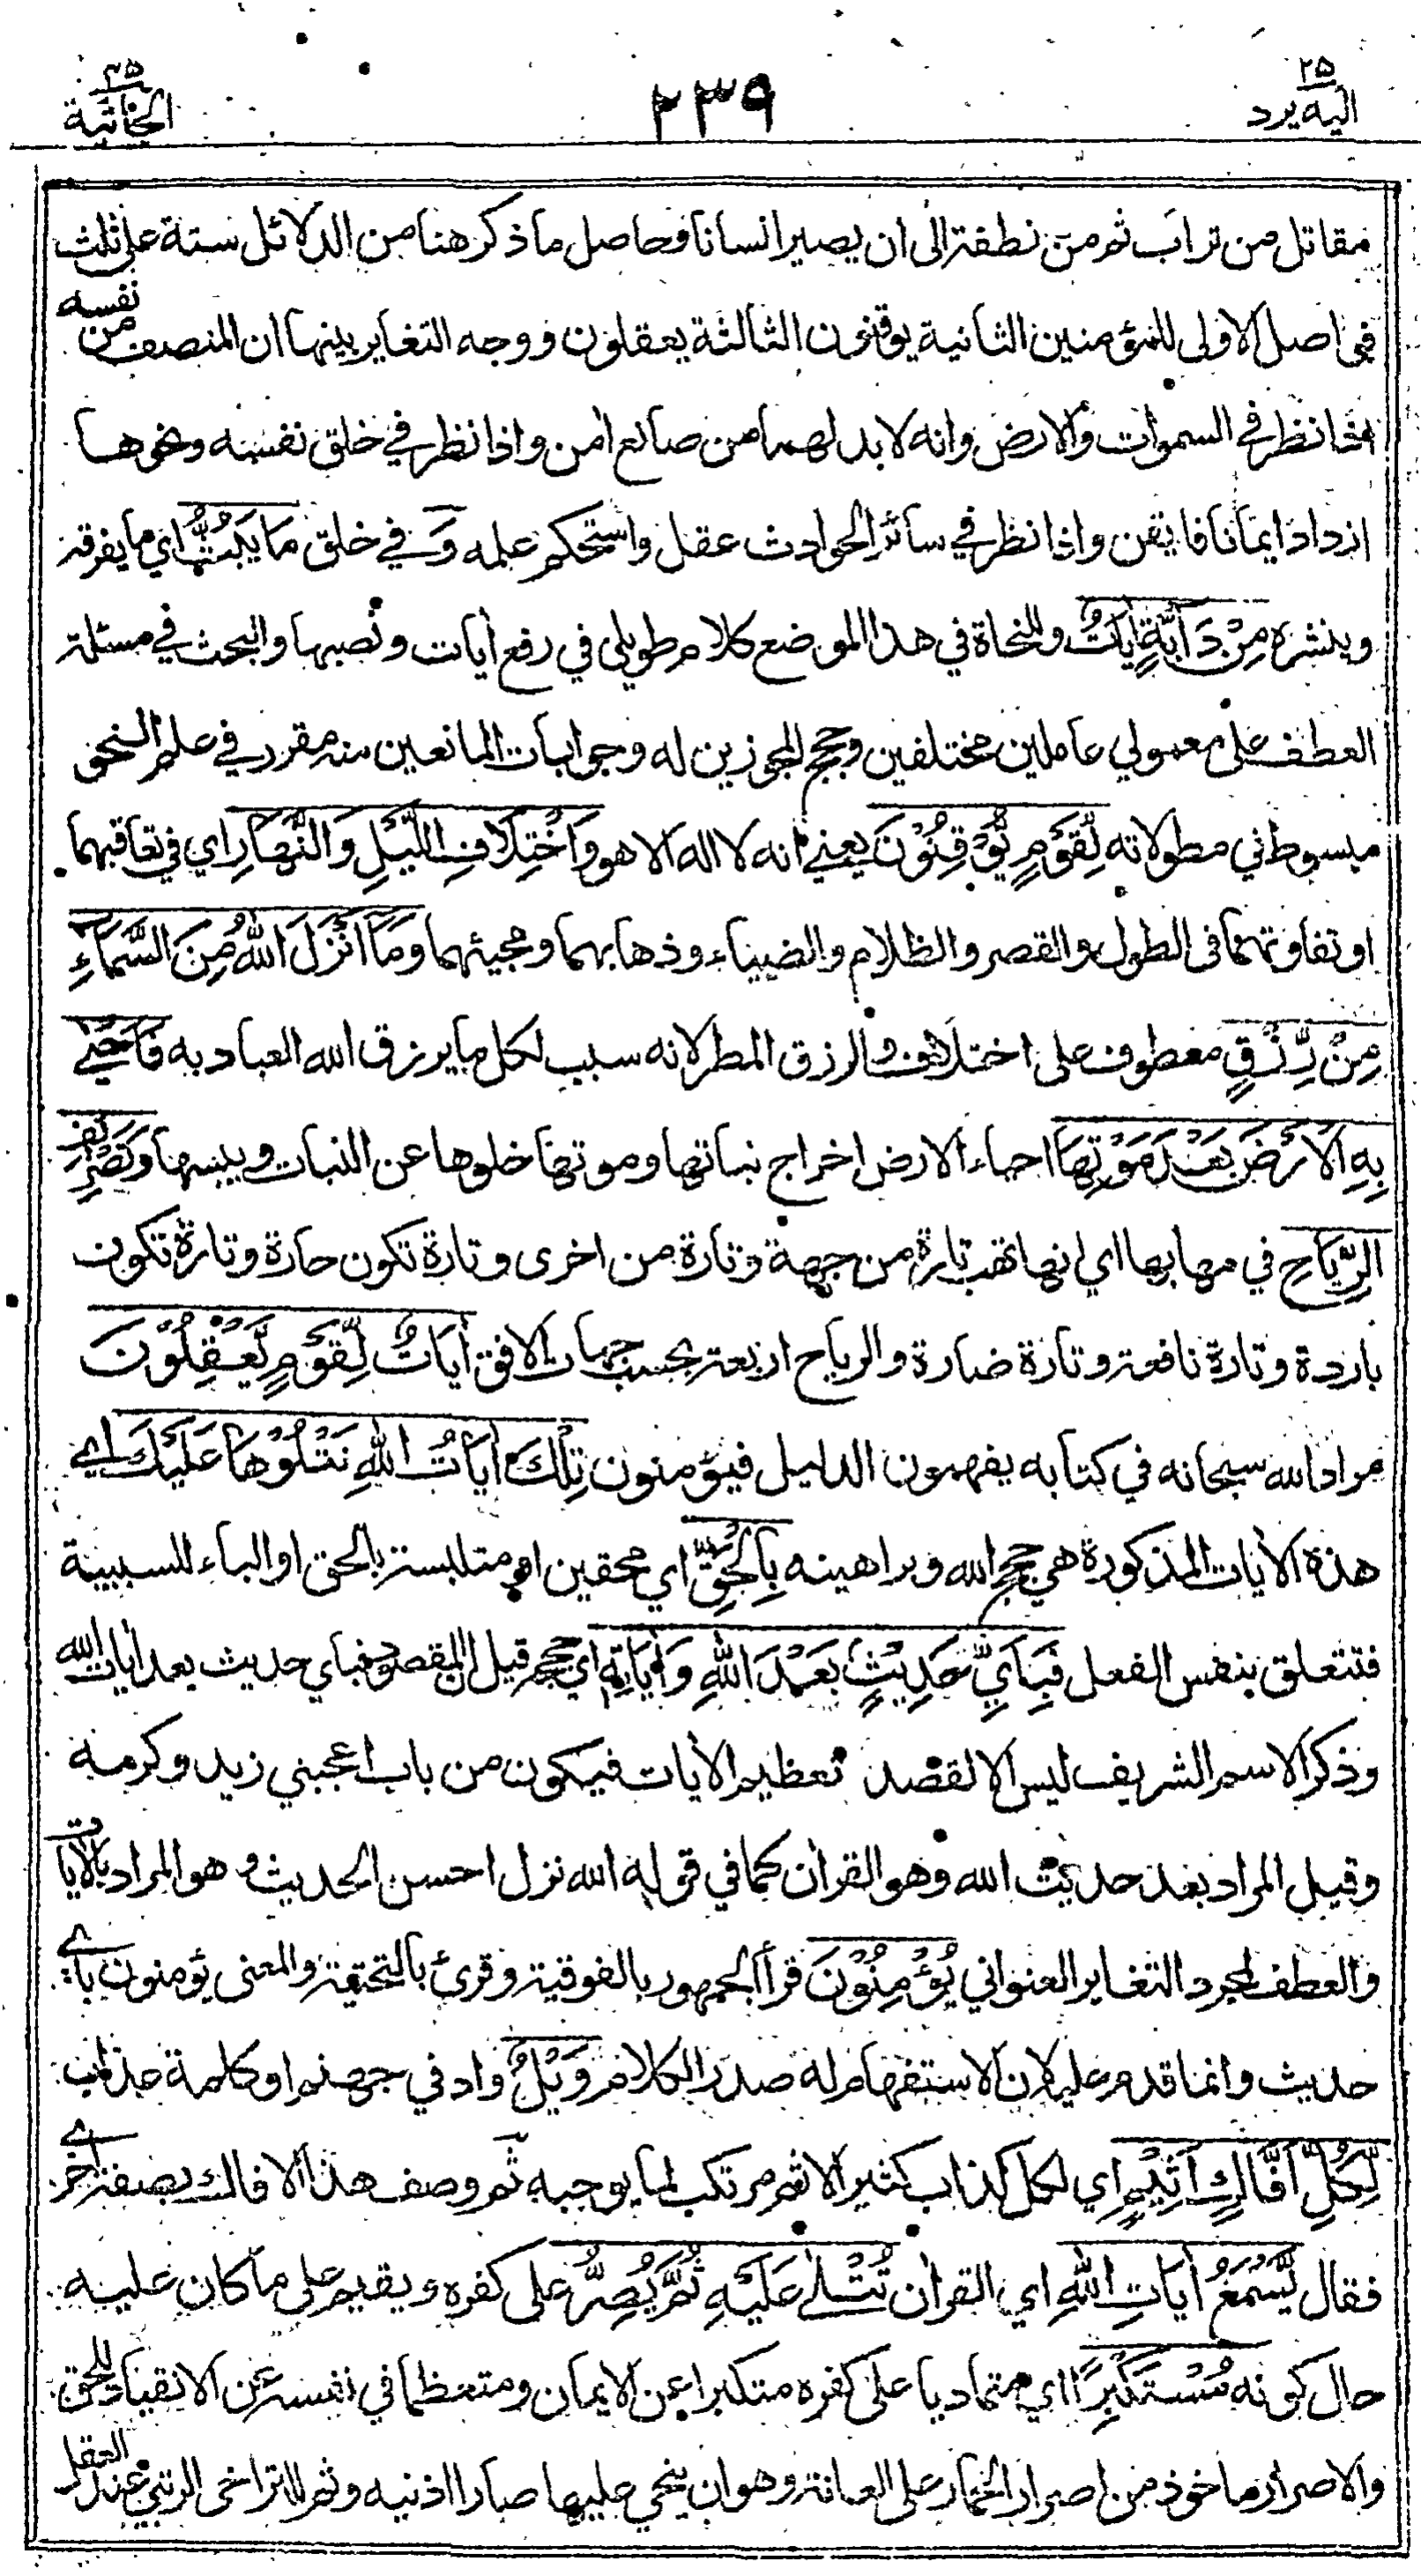 ٢٥
اليه يرد
٢٣٩
٤٥
الجاثية
مقاتل من تراب ثم من نطفة الى ان يصير انسانا فحاصل ما ذكر هنا من الدلائل ستة على ثلث
فواصل الاولى للمؤمنين الثانية يوقنون الثالثة يعقلون ووجه التغاير بينها ان المنصف من نفسه
اذا نظر في السموات والارض وانه لا بد لهما من صانع امن واذا نظر في خلق نفسه ونحوها
ازداد ايمانا فايقن واذا نظر في سائر الحوادث عقل واستحكم علمه وَفي خلق مَا يَبُثُّ اي ما يفرقه
وينشره مِنْ دَابَّةٍ أيَاتٌ وللنحاة في هذا الموضع كلام طويل في رفع أيات ونصبها والبحث في مسئلة
العطف على معمولي عاملين مختلفين وحجج المجوزين له وجوابات المانعين منه مقرر في علم النحو
مبسوط في مطولاته لِّقَوْمٍ يُّوْقِنُوْنَ يعني انه لا اله الا هو وَاخْتِلَافِ اللَّيْلِ وَالنَّهَارِ اي في تعاقبهما
او تفاوتهما في الطول والقصر والظلام والضياء وذهابهما ومجيئهما وَمَا أَنْزَلَ اللهُ مِنَ السَّمَاءِ
مِنْ رِّزْقٍ معطوف على اختلاف والرزق المطر لانه سبب لكل ما يرزق الله العباد به فَأَحْيَى
بِهِ الْأَرْضَ بَعْدَ مَوْتِهَا احياء الارض اخراج نباتها وموتها خلوها عن النبات ويبسها وَتَصْرِيْفِ
الرِّيَاحِ في مهابها اي انها تهب تارة من جهة وتارة من اخرى وتارة تكون حارة وتارة تكون
باردة وتارة نافعة وتارة ضارة والرياح اربعة بحسب جهات الافق أيَاتٌ لِّقَوْمٍ يَّعْقِلُوْنَ
مراد الله سبحانه في كتابه يفهمون الدليل فيؤمنون تِلْكَ أيَاتُ اللهِ نَتْلُوْهَا عَلَيْكَ اي
هذه الأيات المذكورة هي حجج الله وبراهينه بِالْحَقِّ اي محقين او متلبسة بالحق او الباء للسببية
فتتعلق بنفس الفعل فَبِأَيِّ حَدِيْثٍ بَعْدَ اللهِ وَأيَاتِهِ اي حججه قيل ان المقصود فباي حديث بعد أيات الله
وذكر الاسم الشريف ليس الا لقصد تعظيم الأيات فيكون من باب اعجبني زيد وكرمه
وقيل المراد بعد حديث الله وهو القرأن كما في قوله الله نزل احسن الحديث وهو المراد بالأيات
والعطف لمجرد التغاير العنواني يُؤْمِنُوْنَ قرأ الجمهور بالفوقية وقرئ بالتحتية والمعنى يؤمنون باي
حديث وانما قدم عليه لان الاستفهام له صدر الكلام وَيْلٌ واد في جهنم او كلمة عذاب
لِّكُلِّ أَفَّاكٍ أَثِيْمٍ اي لكل كذاب كثير الاثم مرتكب لما يوجبه ثم وصف هذا الافاك بصفة اخرى
فقال يَسْمَعُ أيَاتِ اللهِ اي القرأن تُتْلَى عَلَيْهِ ثُمَّ يُصِرُّ على كفره ويقيم على ما كان عليه
حال كونه مُسْتَكْبِرًا اي متماديا على كفره متكبرا عن الايمان ومتعظما في نفسه عن الانقياد للحق
والاصرار ماخوذ من اصرار الحمار على العانة وهو ان ينحي عليها صارا اذنيه وثم للتراخي الرتبي عند العقل